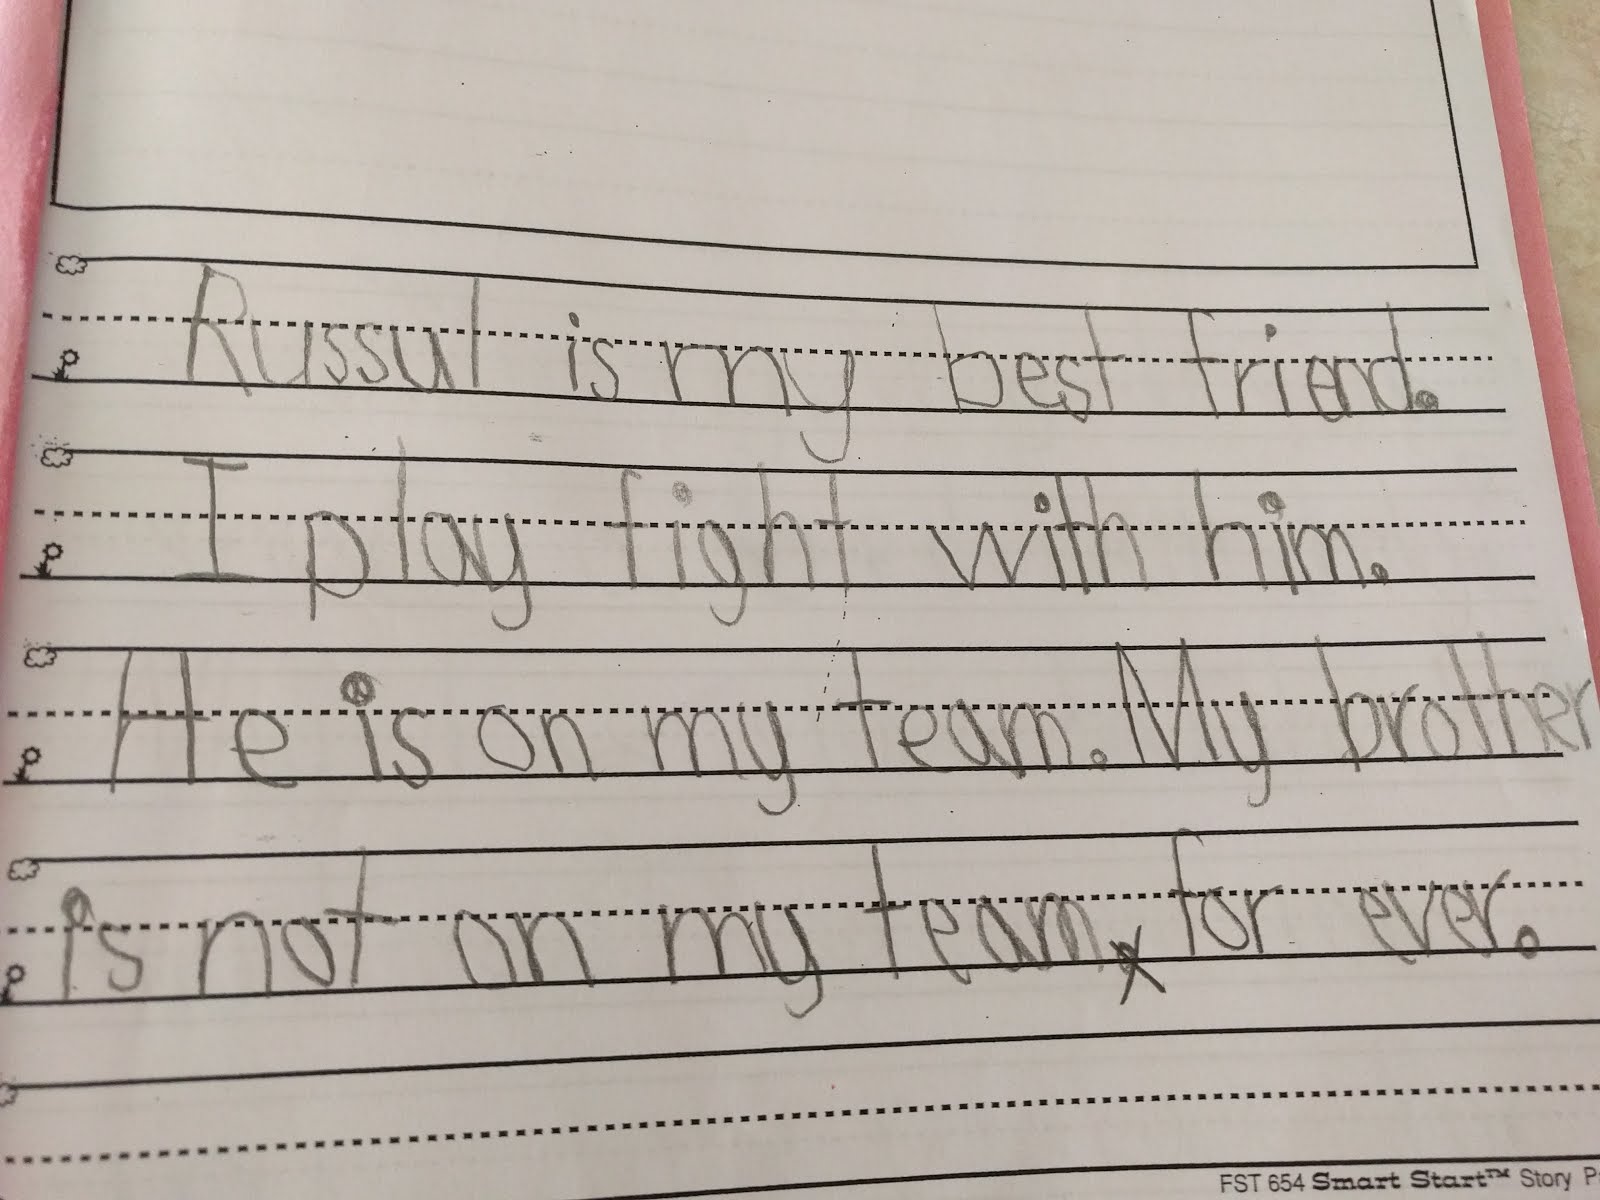 Russul is my best friend.
I play fight with him.
He is on my team. My brother
is not on my team for ever.
FST 654 Smart Start™ Story